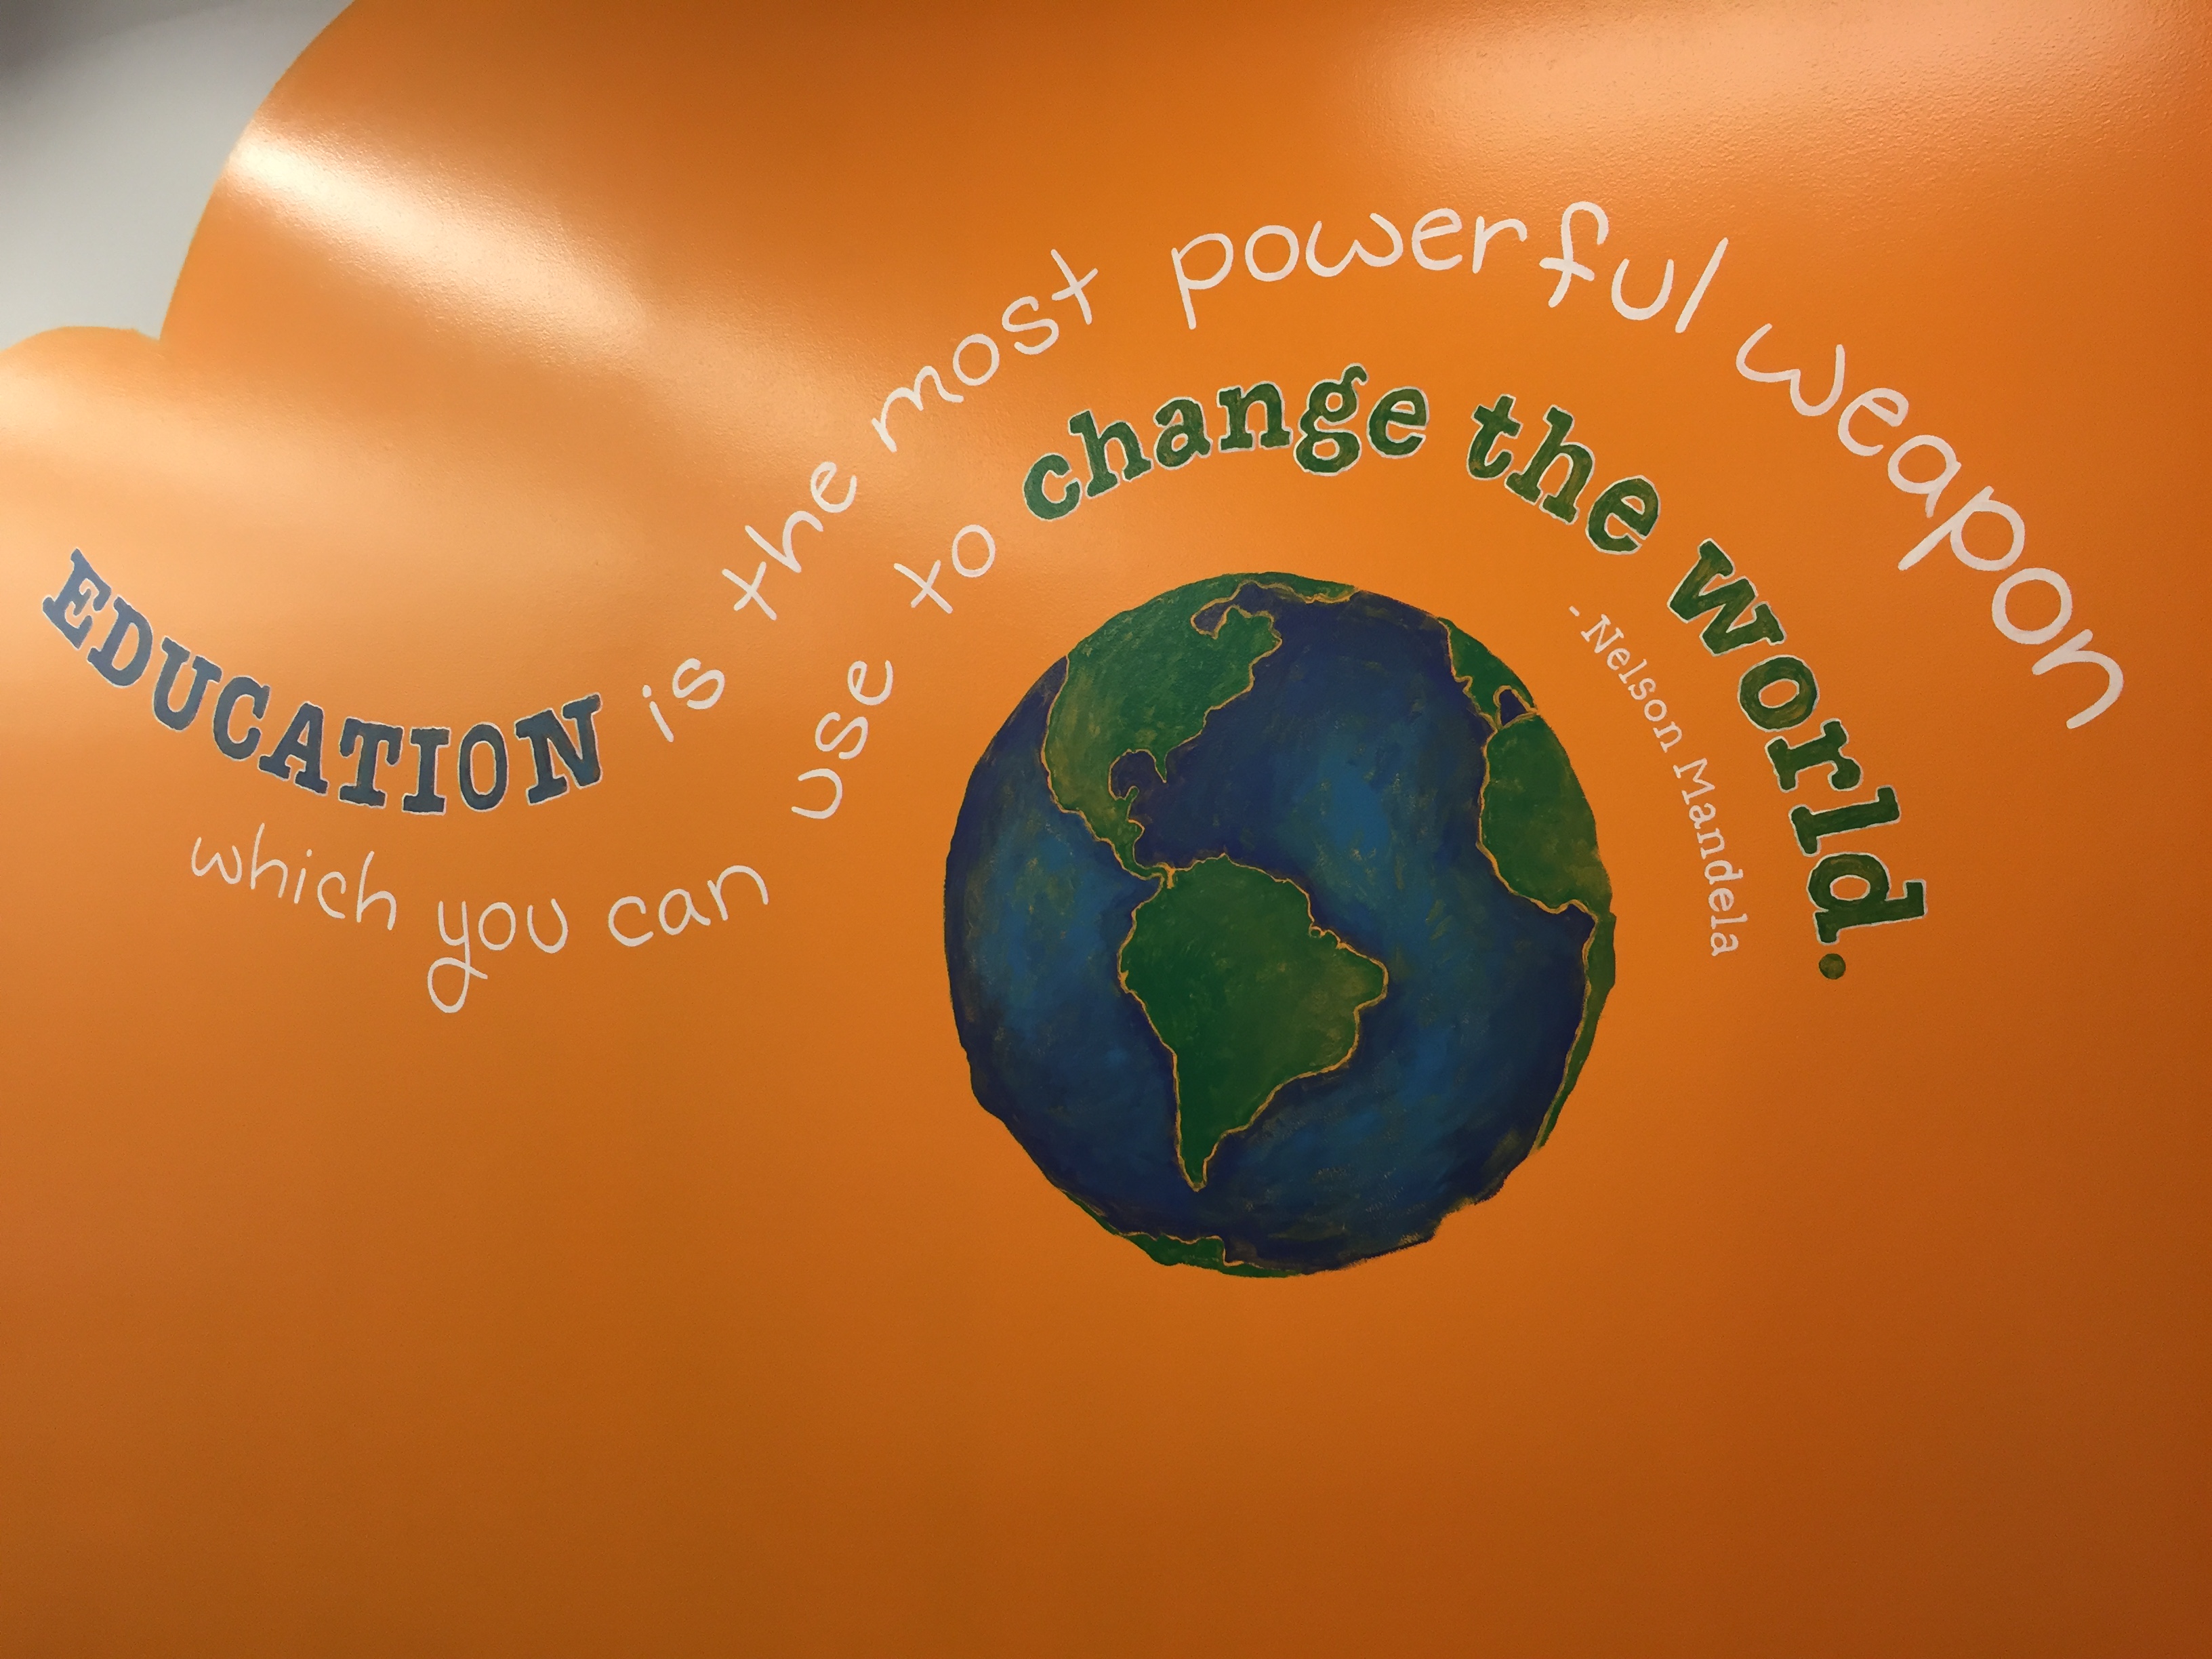 EDUCATION is the most powerful weapon
which you can use to change the world.
-Nelson Mandela